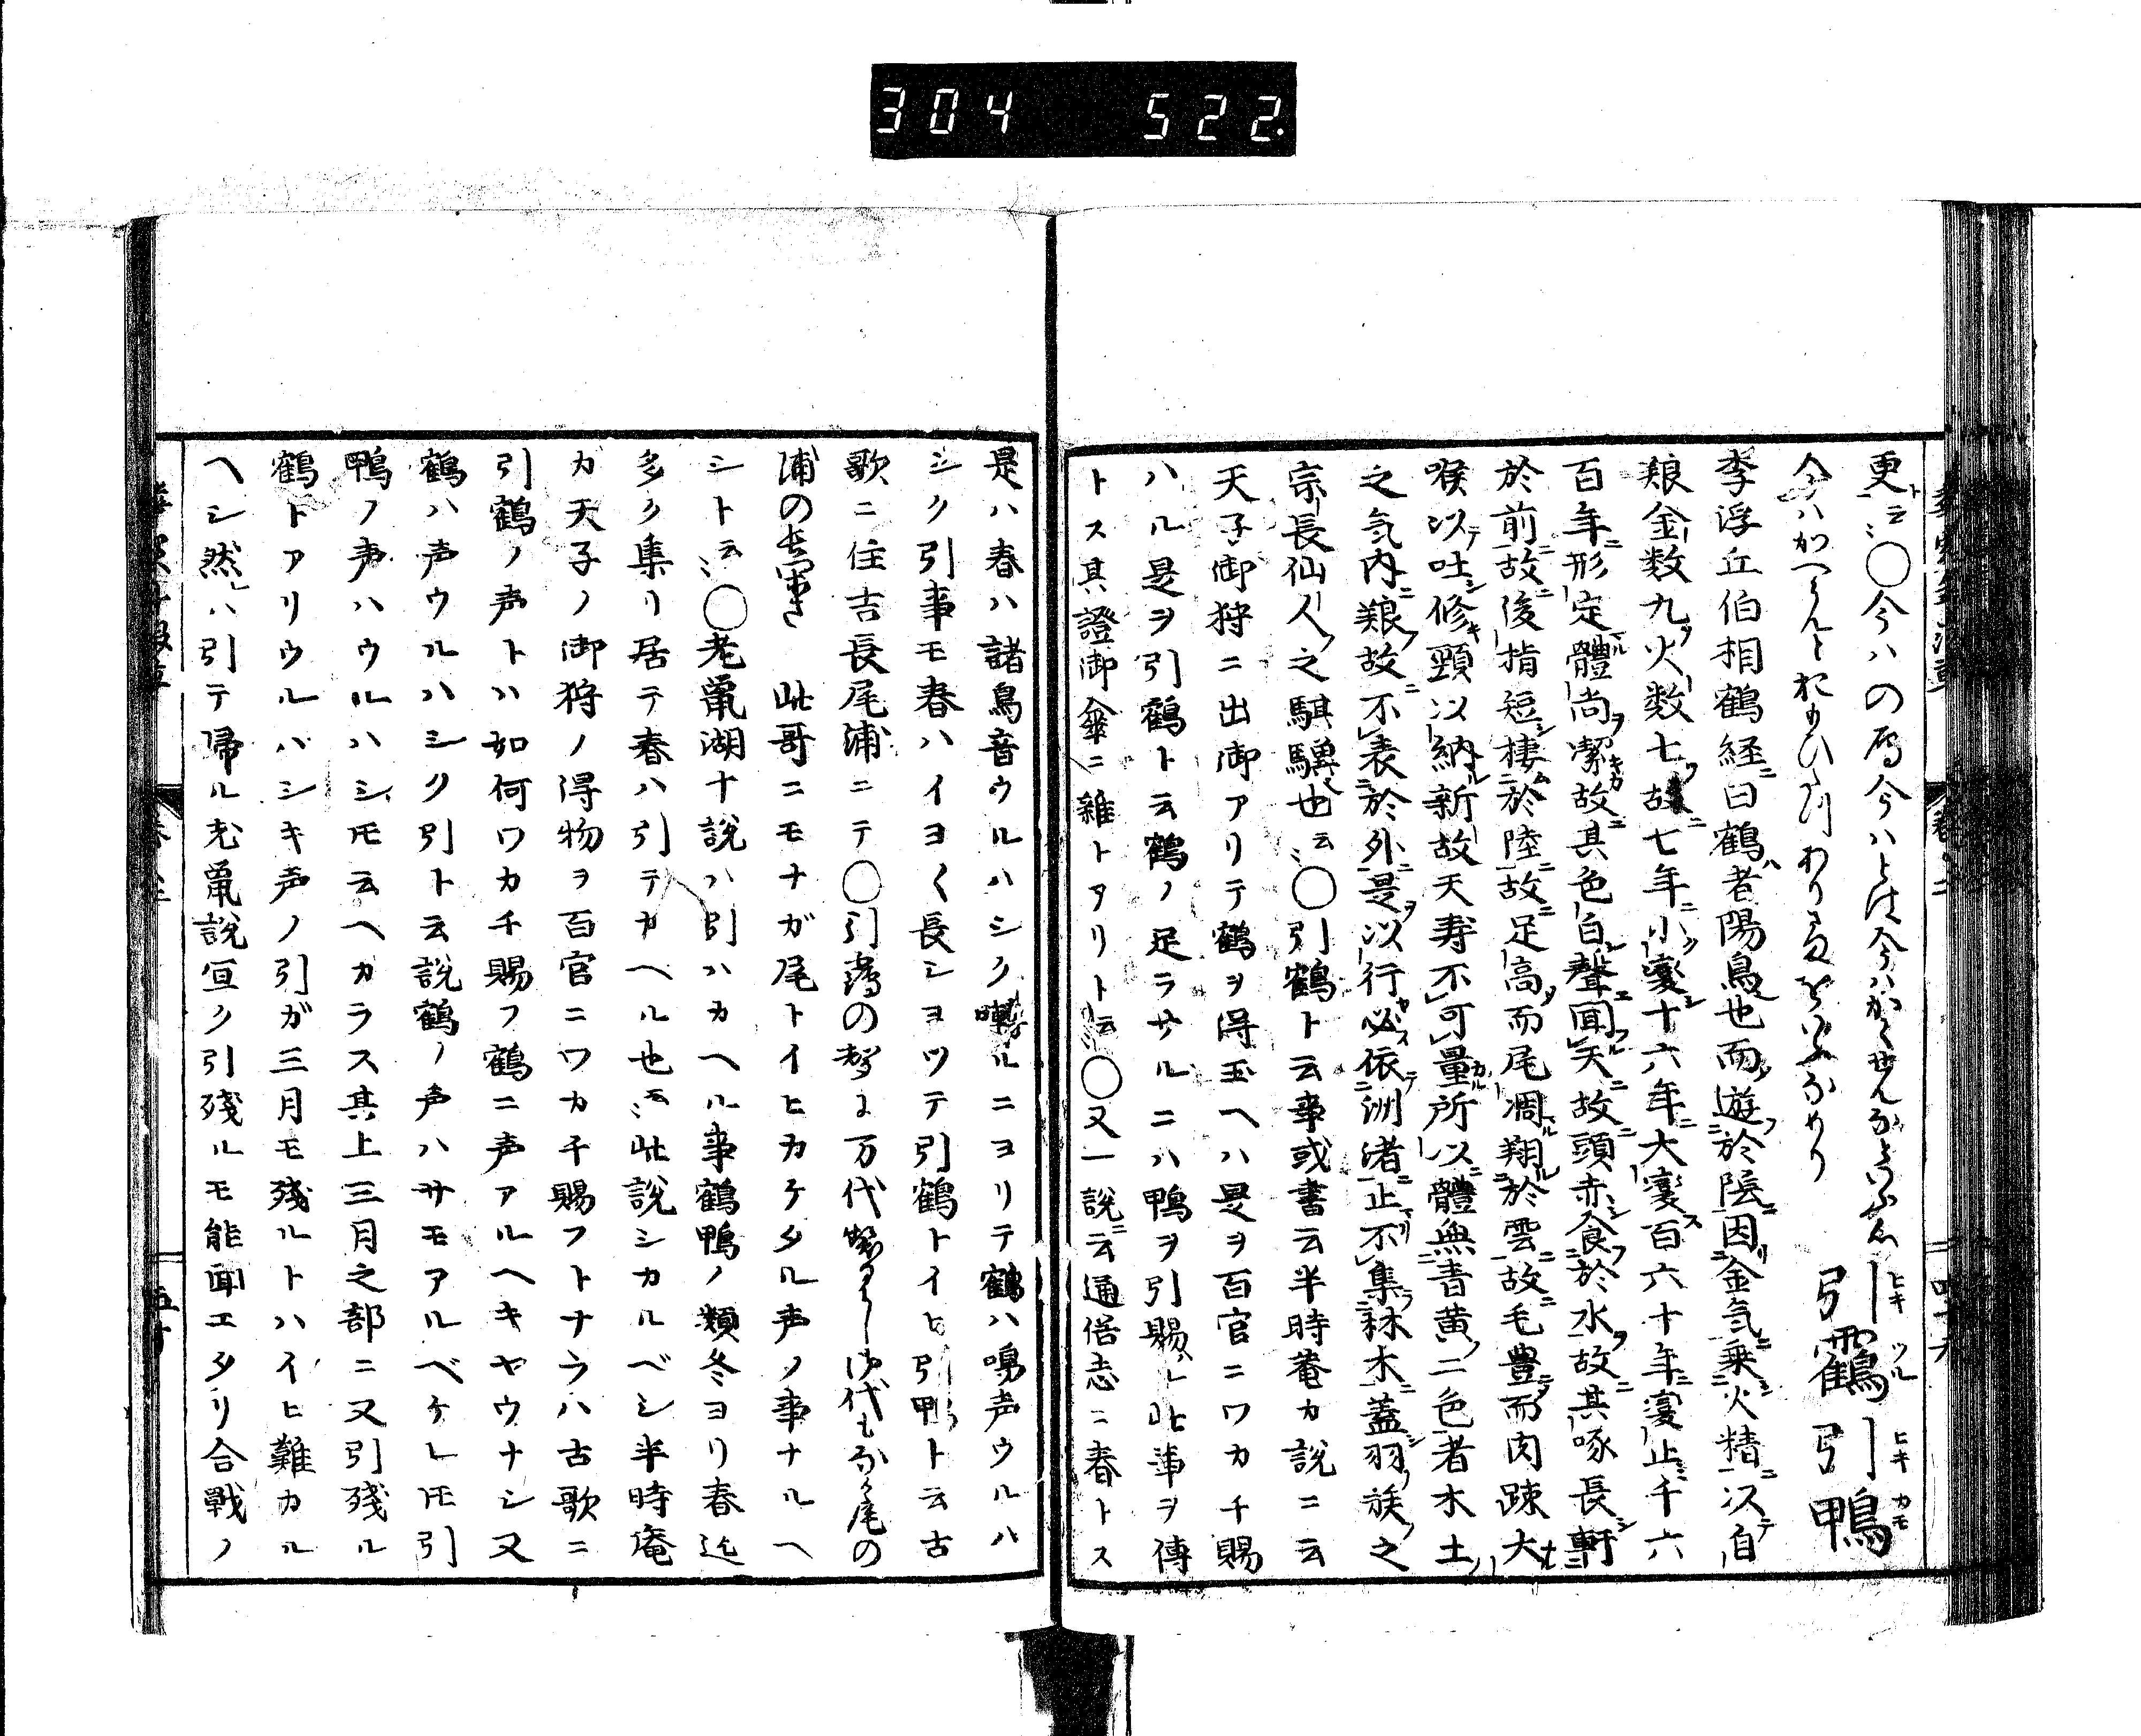 304 522
更ト云〻〇今ハの雁今ハとは今ハかくせんなといふ心
今ハかへらんとおもひ
引靏 引鴨
ヒキツル ヒキカモ
李浮丘伯相鶴経曰鶴者陽鳥也而遊於陰因金気乗火精以自
粮金数九火数七故七年小変十六年大変百六十年変止千六
百年形定體尚潔故其色白聲聞天故頭赤食於水故其啄長軒
於前故後指短棲於陸故足高而尾凋翔於雲故毛豊而肉疎大
喉以吐修頸以納新故天寿不可量所以體無青黄二色者木土
之気内粮故不表於外是以行必依洲渚止不集林木蓋羽族之
宗長仙人之騏驥也云〻〇引鶴ト云事或書云半時菴カ説ニ云
天子御狩ニ出御アリテ鶴ヲ得玉ヘハ是ヲ百官ニワカチ賜
ハル是ヲ引鶴ト云鶴ノ足ラサルニハ鴨ヲ引賜ル此事ヲ傳
トス其證御傘ニ雑トアリト云〻〇又一説ニ云通俗志ニ春トス
是ハ春ハ諸鳥音ウルハシク囀ルニヨリテ鶴ハ鳴声ウルハ
シク引事モ春ハイヨ〱長シヨツテ引鶴トイヒ引鴨ト云古
歌ニ住吉長尾浦ニテ〇引鶴の声に万代
浦の 此哥ニモナガ尾トイヒカケタル声ノ事ナルヘ
シト云〻〇老鼠湖十説ハ引ハカヘル事鶴鴨ノ類冬ヨリ春迄
多ク集リ居テ春ハ引テカヘル也云〻此説シカルベシ半時庵
カ天子ノ御狩ノ得物ヲ百官ニワカチ賜フトナラハ古歌ニ
引鶴ノ声トハ如何ワカチ賜フ鶴ニ声アルヘキヤウナシ又
鶴ハ声ウルハシク引ト云説鶴ノ声ハサモアルベケレモ引
鴨ノ声ハウルハシモ云ヘカラス其上三月之部ニ又引残ル
鶴トアリウルハシキ声ノ引ガ三月モ残ルトハイヒ難カル
ヘシ然レハ引テ帰ル老鼠説宜ク引残ルモ能聞エタリ合戦ノ